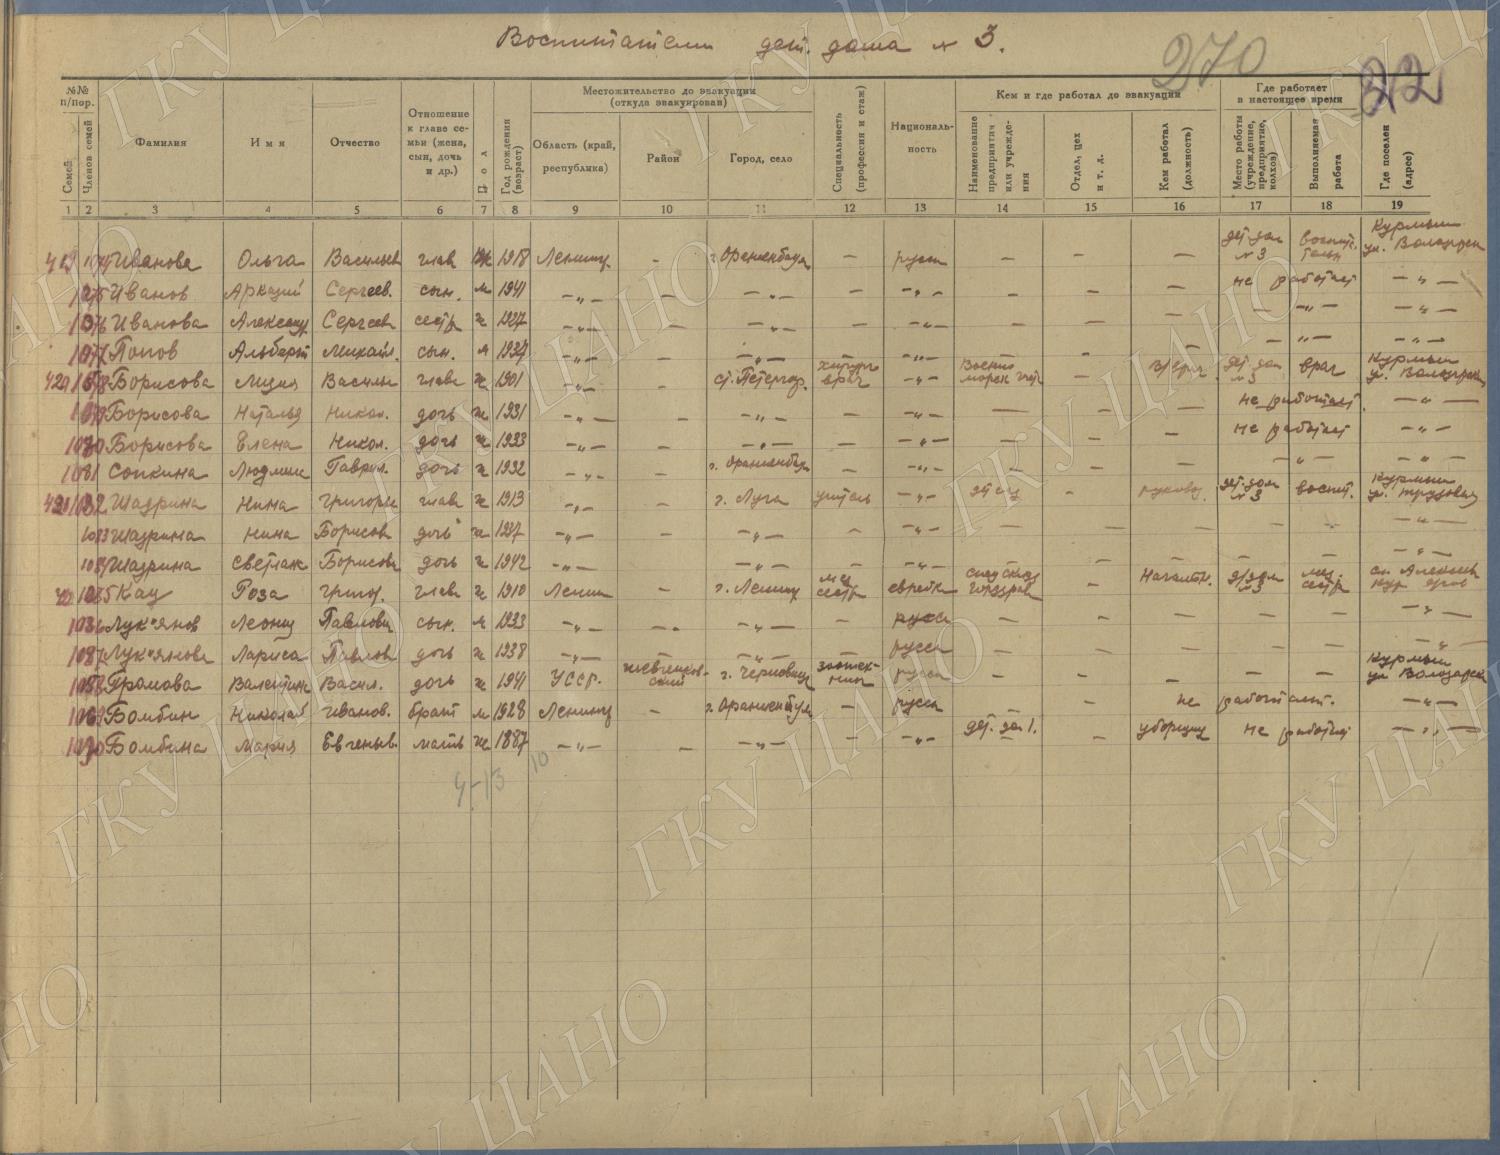 Воспитатели дет. дома № 3.
270
22
№№ п/пор.
Семей
Членов семей
Фамилия
Имя
Отчество
Отношение к главе семьи (жена, сын, дочь и др.)
Пол
Год рождения (возраст)
Местожительство до эвакуации (откуда эвакуирован)
Область (край, республика)
Район
Город, село
Специальность (профессия и стаж)
Национальность
Кем и где работал до эвакуации
Наименование предприятия или учреждения
Отдел, цех и т. д.
Кем работал (должность)
Где работает в настоящее время
Место работы (учреждение, предприятие, колхоз)
Выполняемая работа
Где поселен (адрес)
1 2 3 4 5 6 7 8 9 10 11 12 13 14 15 16 17 18 19
Иванова Ольга Васильев глав ж 1918 Ленинг - - русск - - - дет дом №3 воспит. Курмыш ул. Володарск
Иванов Аркадий Сергеев. сын. м 1941 -"- - -"- - -"- - - - не работает -"-
1076 Иванова Сергеев сестр ж 1927 -"- - -"- - -"- - - - -"- -"-
1077 Попов Альберт Михайл. сын. м 1937 -"- - -"- - -"- - -"- -"-
Борисова Лидия Василь глава ж 1901 -"- - ст. Петергоф. хирург врач -"- - врач дет дом №3 врач Курмыш ул. Володарск
1079 Борисова Наталья Никол. дочь ж 1931 -"- - -"- - -"- - - - не работает -"-
1080 Борисова Елена Никол. дочь ж 1933 -"- - -"- - -"- - - - не работает -"-
1081 Сопкина Людмила Гаврил. дочь ж 1932 -"- - г. Ораниенбаум - -"- - - - -"- -"-
1082 Шадрина Нина Григорье глава ж 1913 -"- - г. Луга учитель -"- дет сад - руковод. дет дом №3 воспит. Курмыш ул. Трудовая
1083 Шадрина Нина Борисов дочь ж 1937 -"- - -"- - -"- - - - - - -"-
Шадрина Светлан Борисовн дочь ж 1942 -"- -"- - -"- - - - - - -"-
1085 Кац Роза Григор. глава ж 1910 Ленин - г. Ленинг мед сестр еврейка - д/дом №3 мед. сестр
1086 Лук"янов Леонид Павлович сын. м 1933 -"- - -"- - русск - - - - - -"-
1087 Лук"янова Лариса Павлов дочь ж 1938 -"- - -"- - русск - - - - - -"-
1088 Громова Валентина Васил. дочь ж 1941 УССР. г. Черновицы русск - - - - - Курмыш ул Володарск
1089 Бомбин Николай Иванов. брат м 1928 Ленинг - г. Ораниенбаум - русск - - не работает. -"-
1090 Бомбина Мария Евгеньев. мать ж 1887 -"- - -"- - -"- дет. дом 1. - уборщиц не работает -"-
4-13
10
ГКУ ЦАНО